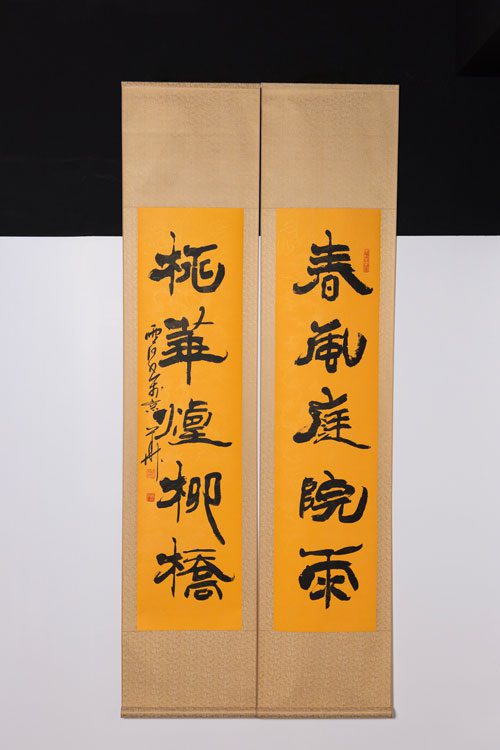 春風庭院雨
桃華煙柳橋